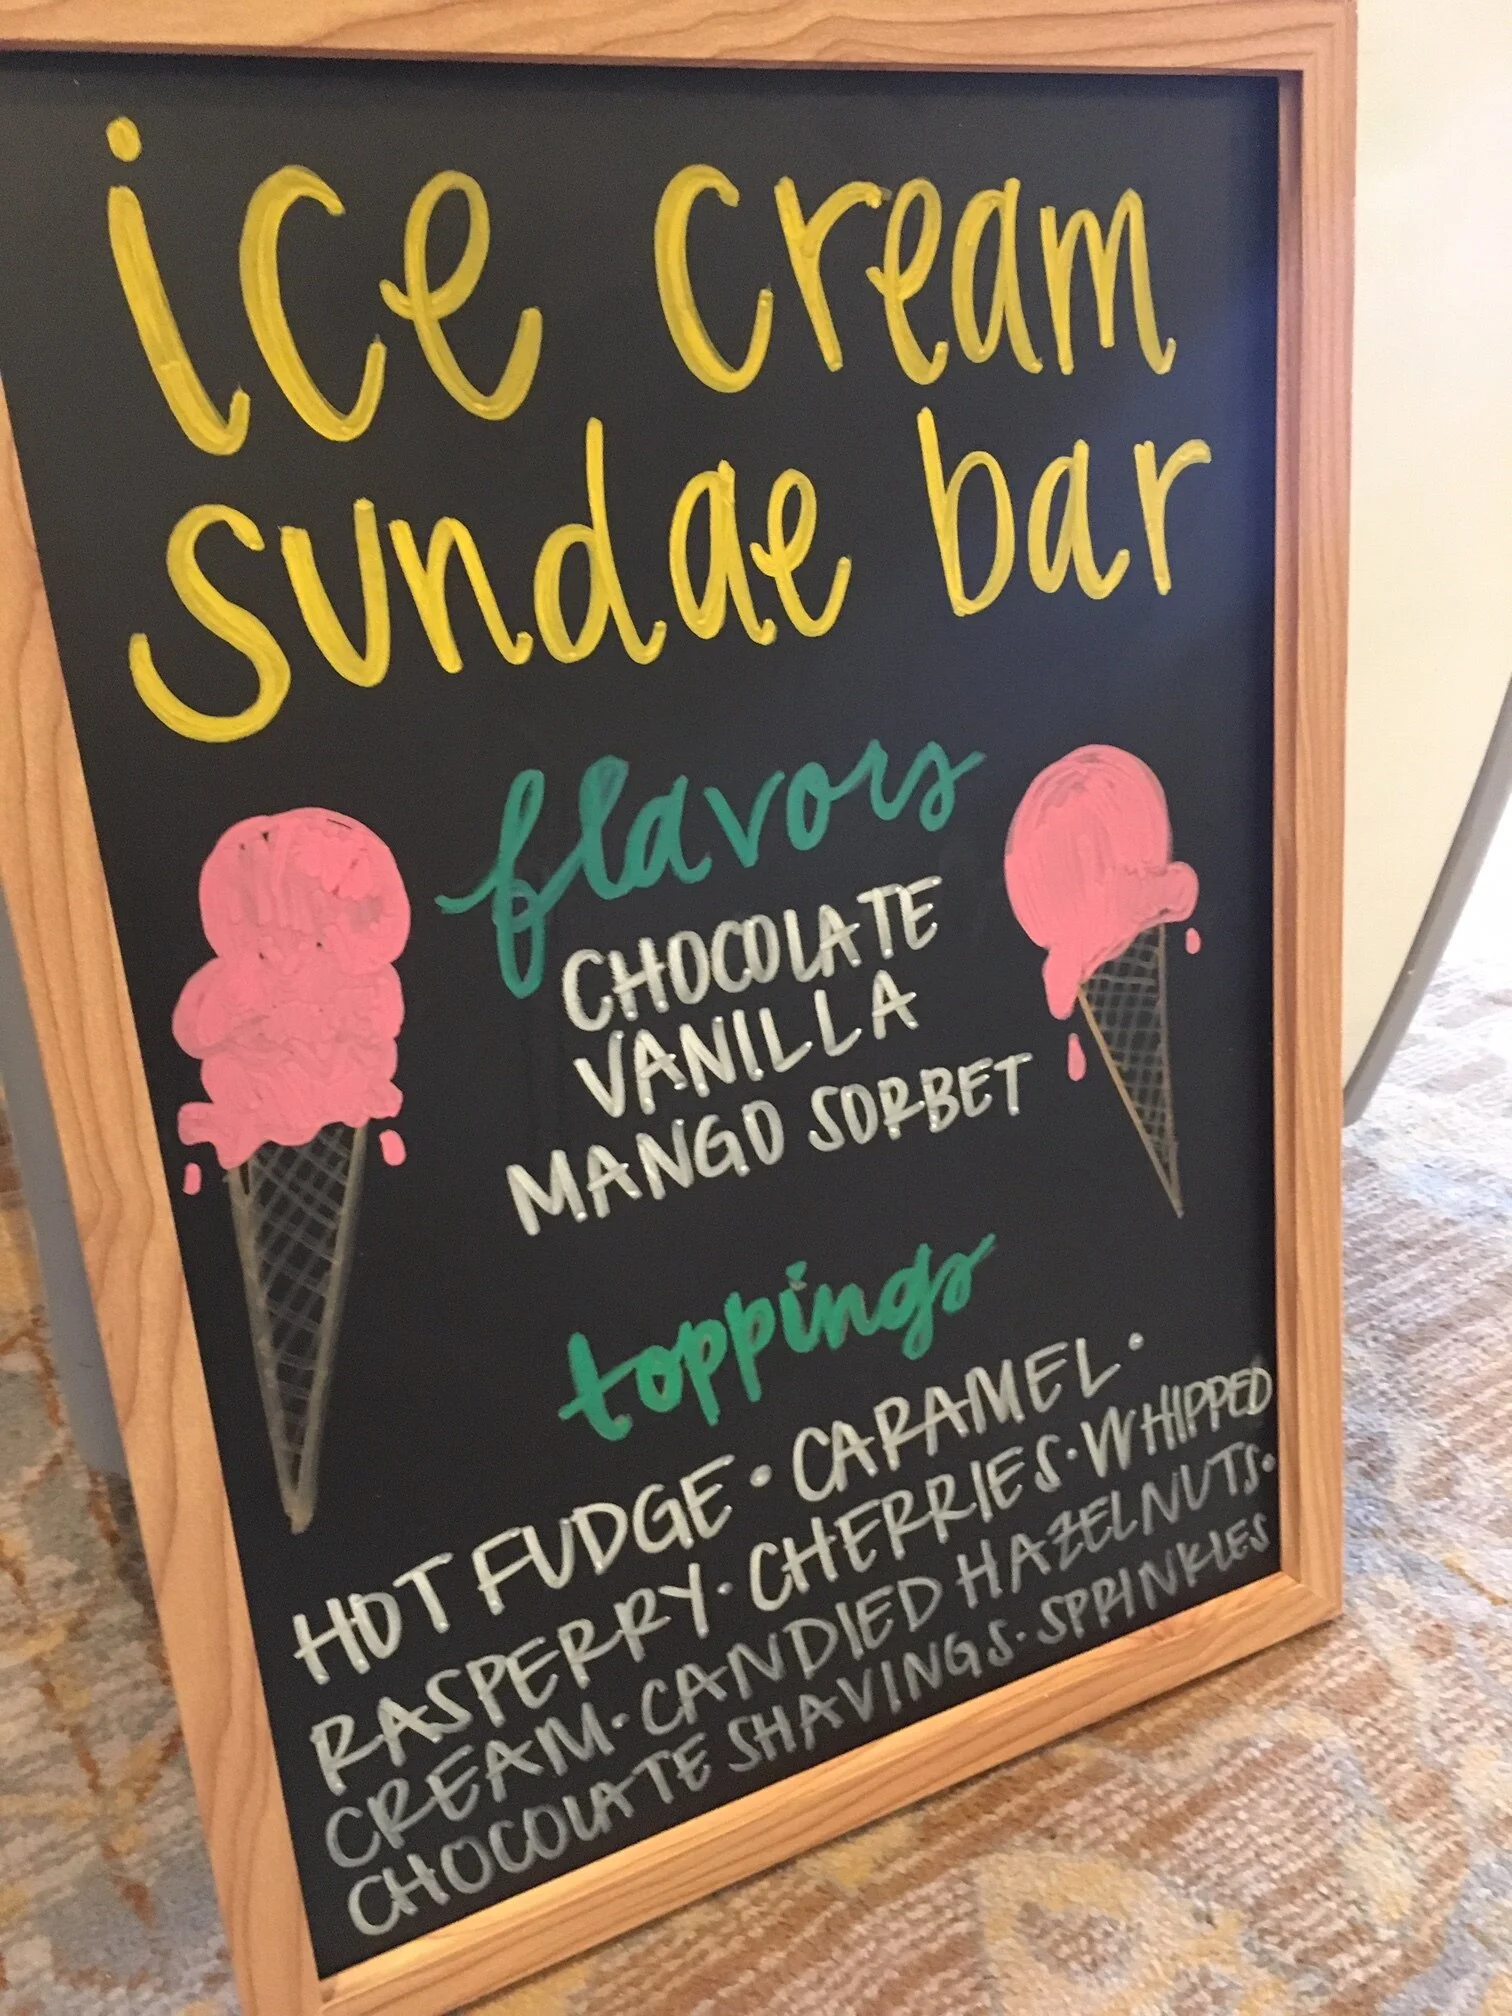 ice cream
sundae bar
flavors
CHOCOLATE
VANILLA
MANGO SORBET
toppings
HOT FUDGE · CARAMEL ·
RASPERRY · CHERRIES · WHIPPED
CREAM · CANDIED HAZELNUTS ·
CHOCOLATE SHAVINGS · SPRINKLES